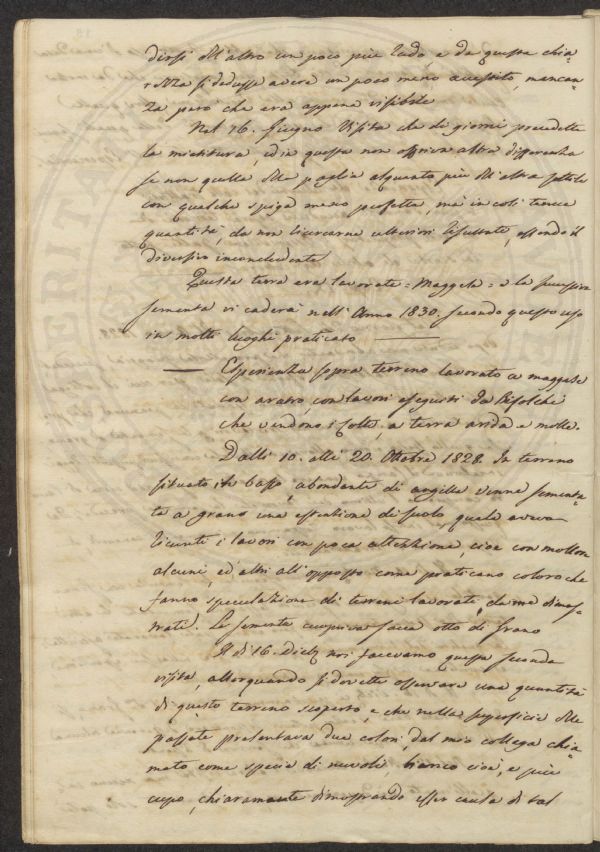 dirsi dell'altro un poco più lucido, e da questa chia=
rezza si dedusse avere un poco meno accestito, mancan=
za però che era appena visibile
Nel 16. Giugno visita che di giorni precedette
la mietitura, ed in questa non offriva altra differenza
se non quella della paglia alquanto più dell'altra sottile
con qualche spiga meno perfetta, ma in così tenue
quantità, da non ricercarne ulteriori risultati, essendo il
diversivo inconcludente
Questa terra era lavorata = Maggese = e la successiva
sementa vi caderà nell'Anno 1830. secondo questo uso
in molti luoghi praticato
— Esperienza sopra terreno lavorato a maggese
con aratro, con lavori eseguiti da Bifolchi
che vendono i Colti, a terra arida e molle.
Dalli 10. alli 20. Ottobre 1828. In terreno
situato in basso, abondante di argilla venne sementa=
ta a grano una estensione di suolo, quale aveva
ricevuti i lavori con poca attenzione, cioè con mollore
alcuni, ed altri all'opposto come praticano coloro che
fanno speculazione di terreni lavorati, da me dimos=
trati. La sementa cuopriva sacca otto di Grano
Il dì 16. Dicbr noi facevamo questa seconda
visita, allorquando si dovette osservare una quantità
di questo terreno scoperto, e che nella superficie delle
passate presentava due colori, dal mio collega chia=
mato come specie di nuvoli, bianco cioè, e più
cupo, chiaramente dimostrando esser causa di tal